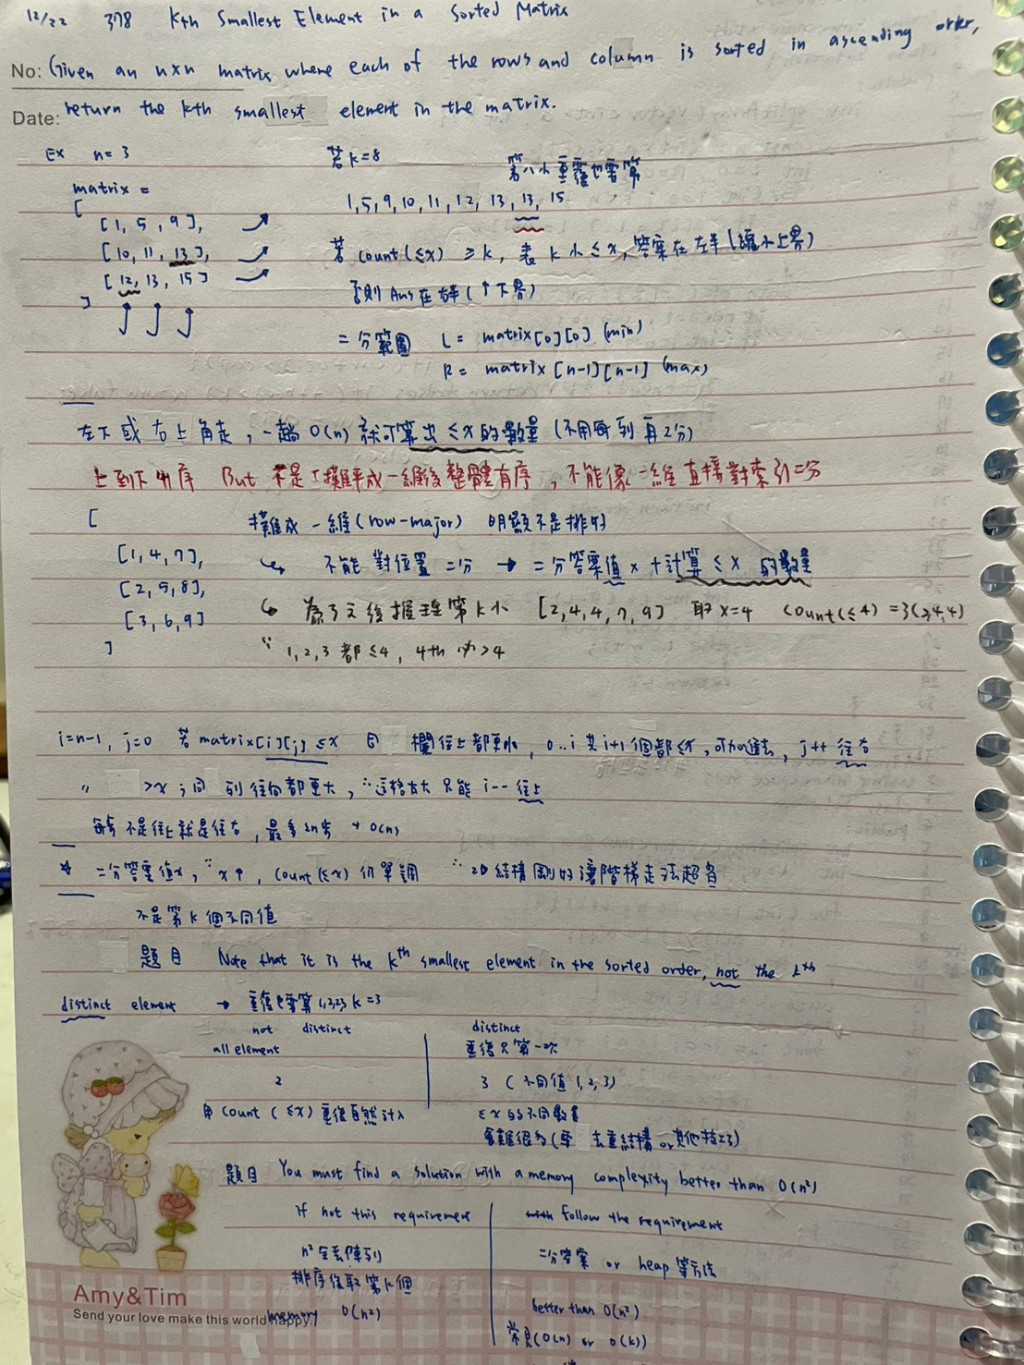 12/22 378 Kth Smallest Element in a Sorted Matrix
No: Given an nxn matrix where each of the rows and column is sorted in ascending order,
Date: return the kth smallest element in the matrix.
Ex n=3 若k=8
matrix = 第八小 重覆也要算
[
[1, 5, 9], 1,5,9,10,11,12,13,13,15
[10, 11, 13], 若 count(≤x) ≥k, 表 k小≤x, 答案在左半(縮小上界)
[12, 13, 15] 否則 Ans在右半(↑下界)
]
二分範圍 L = matrix[0][0] (min)
R = matrix[n-1][n-1] (max)
左下或右上角走, 一趟O(n) 就可算出≤x的數量 (不用每列再2分)
上到下有序 But 不是「攤平成一維後整體有序, 不能像一維直接對索引二分
[ 攤成一維(row-major) 明顯不是排好
[1,4,7], ↪ 不能對位置二分 → 二分答案值x+計算≤x的數量
[2,5,8], ↪ 為了之後推理第k小 [2,4,4,7,9] 取x=4 count(≤4)=3(2,4,4)
[3,6,9]
] ∵ 1,2,3都≤4, 4th 必>4
i=n-1, j=0 若matrix[i][j]≤x 同欄往上都更小, 0..i共i+1個都≤x, 可加進去, j++ 往右
" >x 同列往右都更大, ∵這格太大只能i-- 往上
每步不是往上就是往右, 最多2n步 → O(n)
* 二分答案值x, ∵x↑, count(≤x)仍單調 ∵2D結構剛好讓階梯走法超省
不是第k個不同值
題目 Note that it is the kth smallest element in the sorted order, not the kth
distinct element → 重復也要算 1,2,2,3 k=3
not distinct distinct
all element 重復只算一次
2 3 (不同值1,2,3)
用count(≤x)重復自然計入 ≤x的不同數量
會難很多(要去重結構or其他技巧)
題目 You must find a solution with a memory complexity better than O(n²)
If not this requirement follow the requirement
n²全丟陣列 二分答案 or heap等方法
排序後取第k個
memory O(n²) better than O(n²)
常見(O(n) or O(k))
Amy&Tim
Send your love make this world happy!